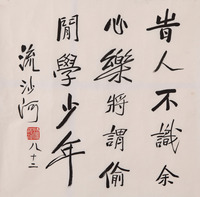 旹人不識余
心樂將謂偷
閒學少年
流沙河
八十二